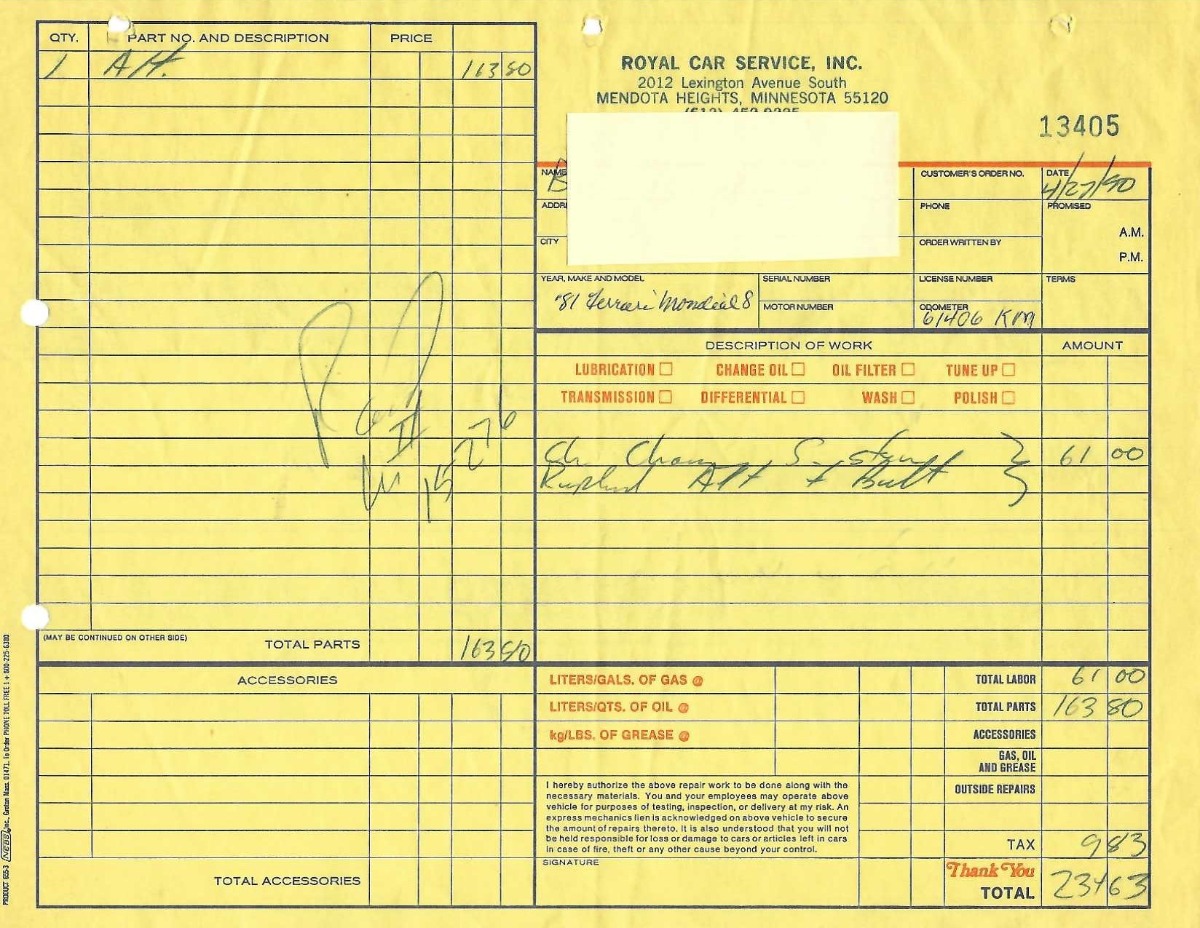 QTY. PART NO. AND DESCRIPTION PRICE
1 Alt. 163 80
(MAY BE CONTINUED ON OTHER SIDE) TOTAL PARTS 163 80
ACCESSORIES
TOTAL ACCESSORIES
Paid
15276
ROYAL CAR SERVICE, INC.
2012 Lexington Avenue South
MENDOTA HEIGHTS, MINNESOTA 55120
13405
NAME
CUSTOMER'S ORDER NO.
DATE 4/27/90
PHONE
PROMISED
A.M.
P.M.
CITY
ORDER WRITTEN BY
YEAR, MAKE AND MODEL
'81 Ferrari Mondial 8
SERIAL NUMBER
MOTOR NUMBER
LICENSE NUMBER
TERMS
ODOMETER
61406 KM
DESCRIPTION OF WORK AMOUNT
LUBRICATION CHANGE OIL OIL FILTER TUNE UP
TRANSMISSION DIFFERENTIAL WASH POLISH
Ch. System 61 00
Alt + Belt
LITERS/GALS. OF GAS @
LITERS/QTS. OF OIL @
kg/LBS. OF GREASE @
TOTAL LABOR 61 00
TOTAL PARTS 163 80
ACCESSORIES
GAS, OIL
AND GREASE
OUTSIDE REPAIRS
TAX 9 83
Thank You
TOTAL 234 63
I hereby authorize the above repair work to be done along with the
necessary materials. You and your employees may operate above
vehicle for purposes of testing, inspection, or delivery at my risk. An
express mechanics lien is acknowledged on above vehicle to secure
the amount of repairs thereto. It is also understood that you will not
be held responsible for loss or damage to cars or articles left in cars
in case of fire, theft or any other cause beyond your control.
SIGNATURE
PRODUCT 655-3 NEBS Inc., Groton Mass. 01471. To Order PHONE TOLL FREE 1 + 800-225-6380